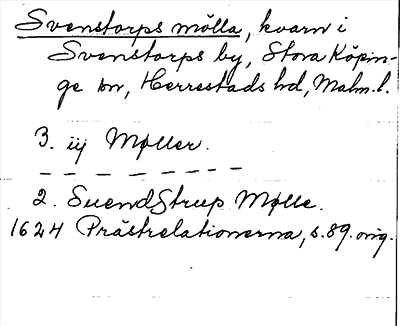 Svenstorps mölla, kvarn i
Svenstorps by, Stora Köpin-
ge sn, Herrestads hd, Malm.l.
3. iij Møller.
2. SuendStrup Mølle.
1624 Prästrelationerna, s.89. orig.